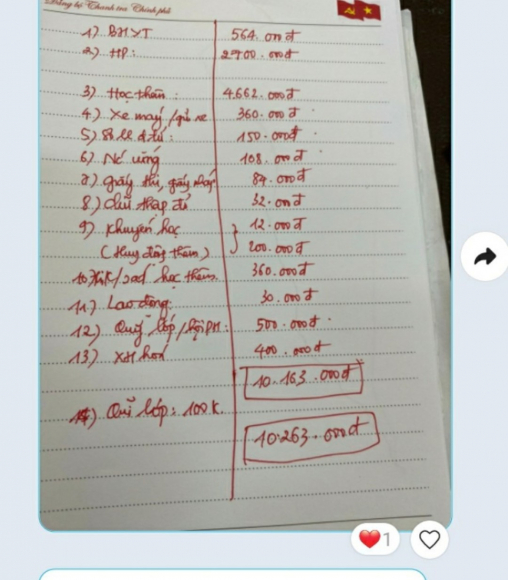 1) BHYT 564.000đ
2) HP: 2700.000đ
3) Học thêm: 4.662.000đ
4) Xe máy/gửi xe 360.000đ
5) Sổ LL đ.tử: 150.000đ
6) Nc uống 108.000đ
7) giấy thi, giấy nháp 84.000đ
8) chữ thập đỏ 32.000đ
9) Khuyến học 12.000đ
(Huy động thêm) 200.000đ
10) học thêm 360.000đ
11) Lao động: 30.000đ
12) Quỹ lớp/hội PH: 500.000đ
13) XH hoá 400.000đ
10.163.000đ
14) Quĩ lớp: 100K
10.263.000đ
1